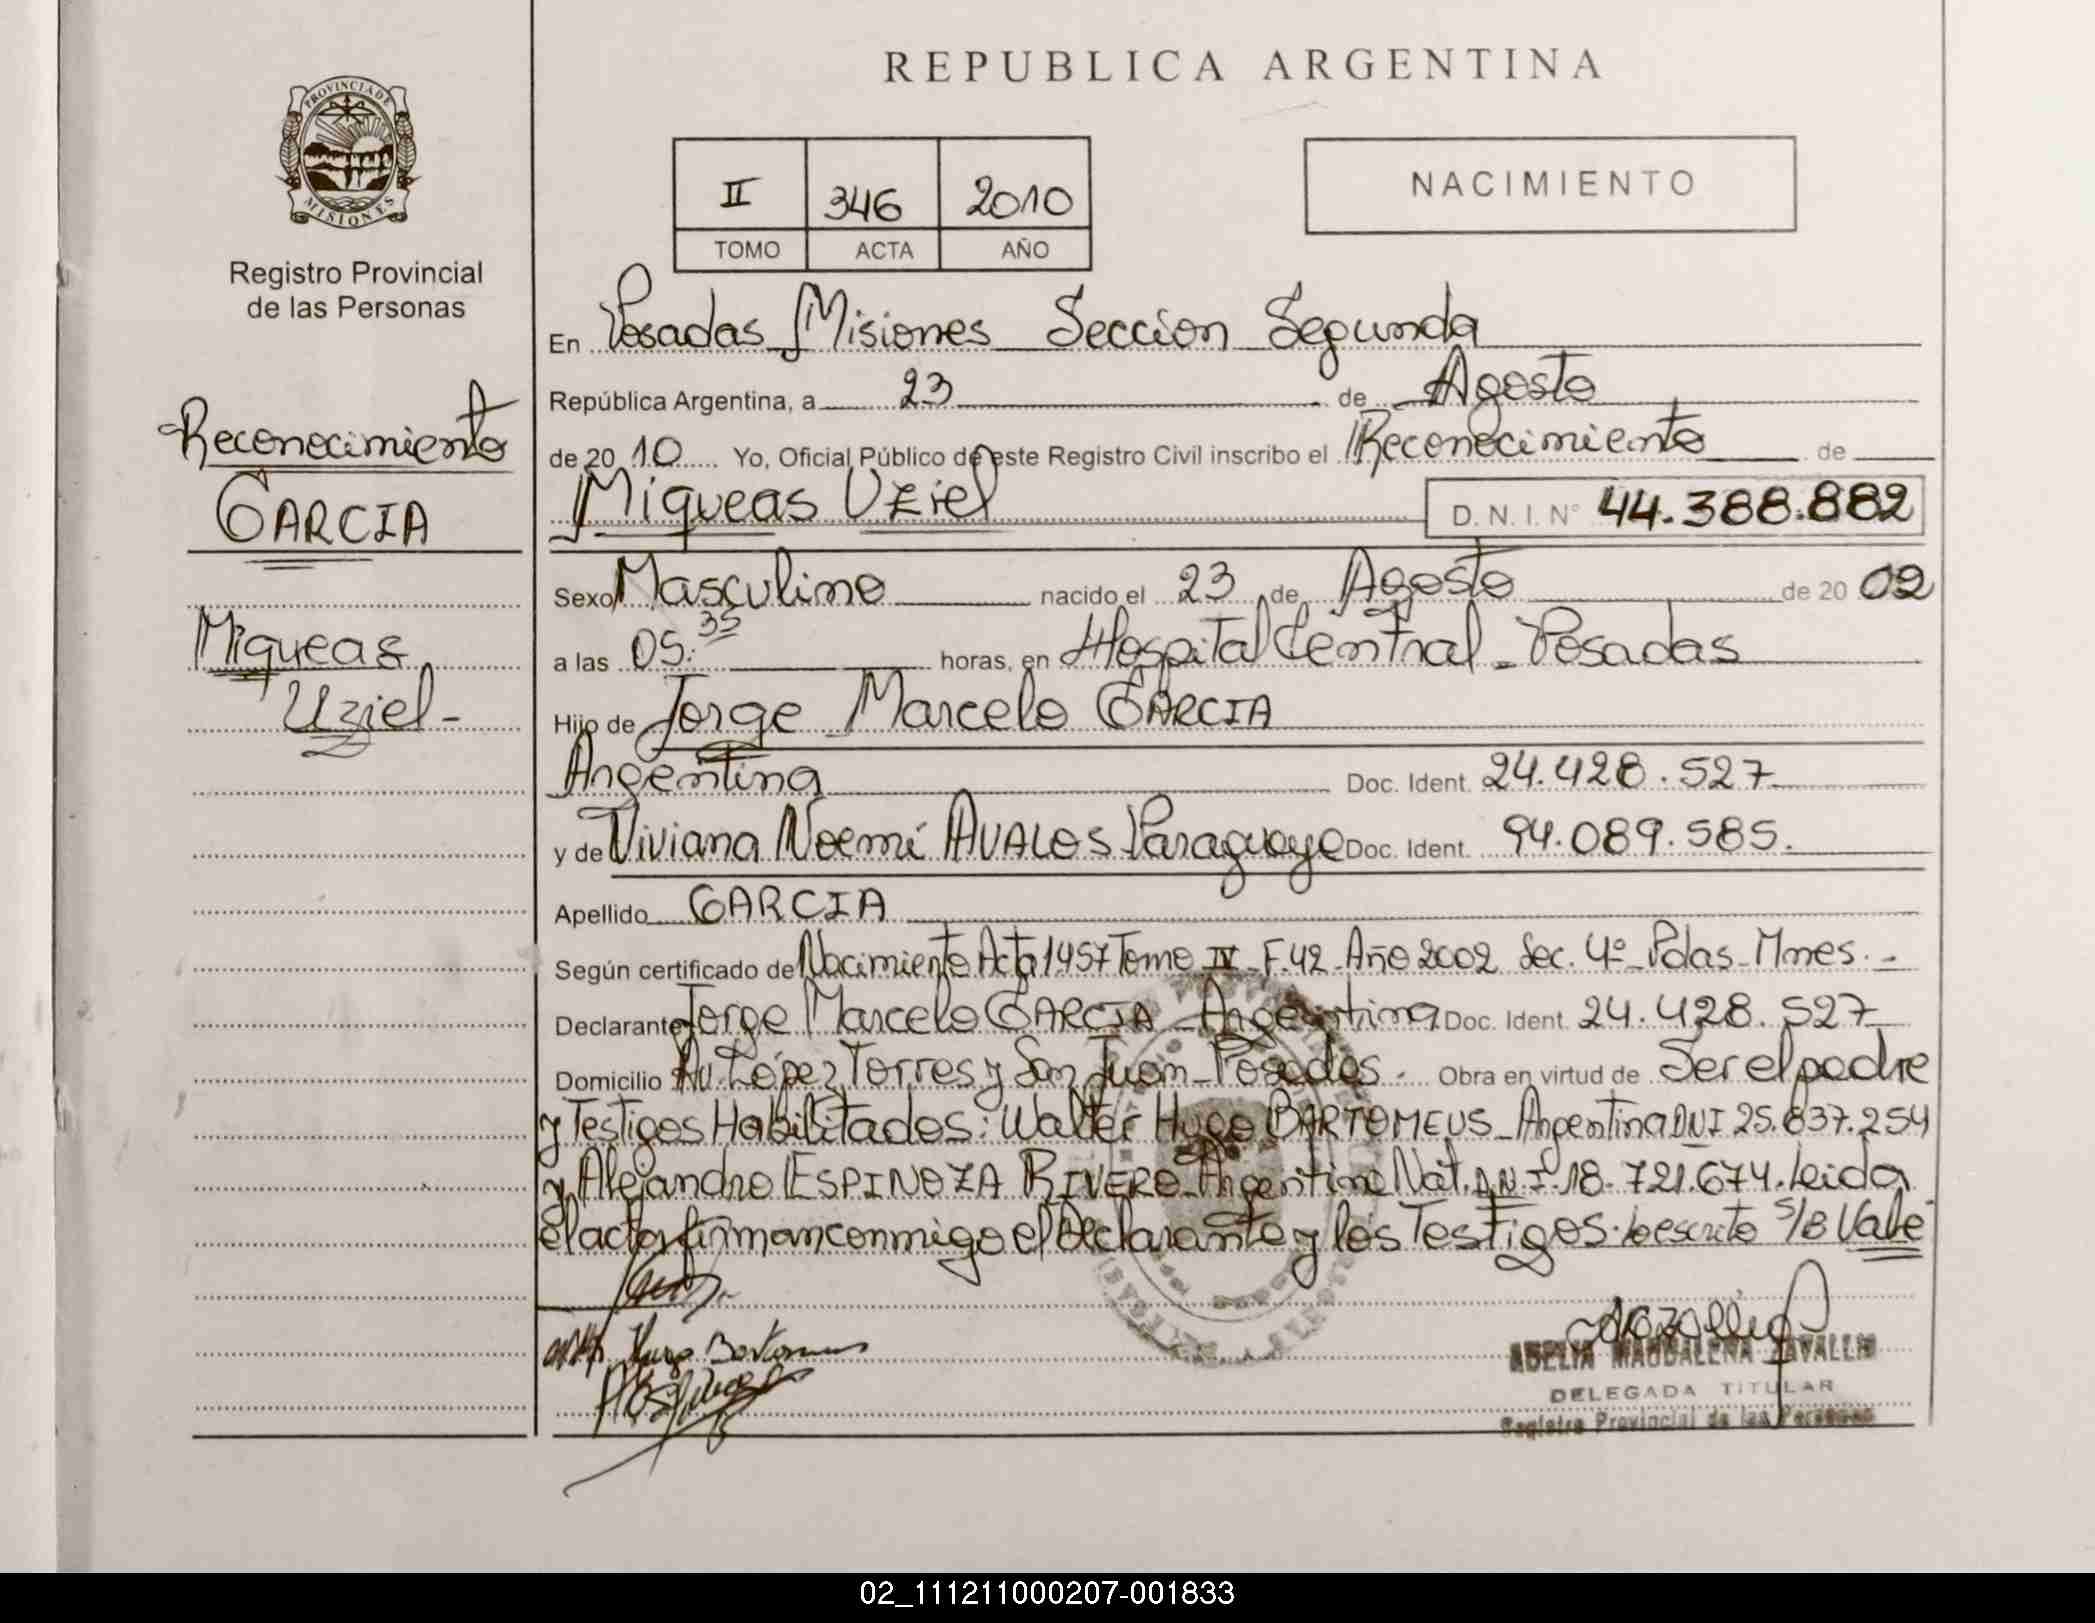 REPUBLICA ARGENTINA
PROVINCIA DE MISIONES
Registro Provincial
de las Personas
II 346 2010
TOMO ACTA AÑO
NACIMIENTO
Reconocimiento
GARCIA
Miqueas
Uziel-
En Posadas Misiones Seccion Segunda
República Argentina, a 23 de Agosto
de 20 10 Yo, Oficial Público de este Registro Civil inscribo el Reconocimiento de
Miqueas Uziel D.N.I. N° 44.388.882
Sexo Masculino nacido el 23 de Agosto de 20 02
a las 05:35 horas, en Hospital Central - Posadas
Hijo de Jorge Marcelo GARCIA
Argentina Doc. Ident. 24.428.527
y de Viviana Noemí AVALOS Paraguaya Doc. Ident. 94.089.585.
Apellido GARCIA
Según certificado de Nacimiento Acta 1457 Tomo IV - F.42 - Año 2002 Sec. 4º - Pdas - Mnes. -
Declarante Jorge Marcelo GARCIA - Argentina Doc. Ident. 24.428.527
Domicilio Av. López Torres y San Juan - Posadas. Obra en virtud de Ser el padre
y Testigos Habilitados: Walter Hugo BARTOMEUS - Argentina DNI 25.837.254
y Alejandro ESPINOZA RIVERO - Argentino Nat. D.N.I. 18.721.674. Leida
el acta firman conmigo el Declarante y los Testigos. lo escrito s/B Vale
Hugo Bartomeus
ADELIA MAGDALENA ZAVALLIA
DELEGADA TITULAR
Registro Provincial de las Personas
02_111211000207-001833